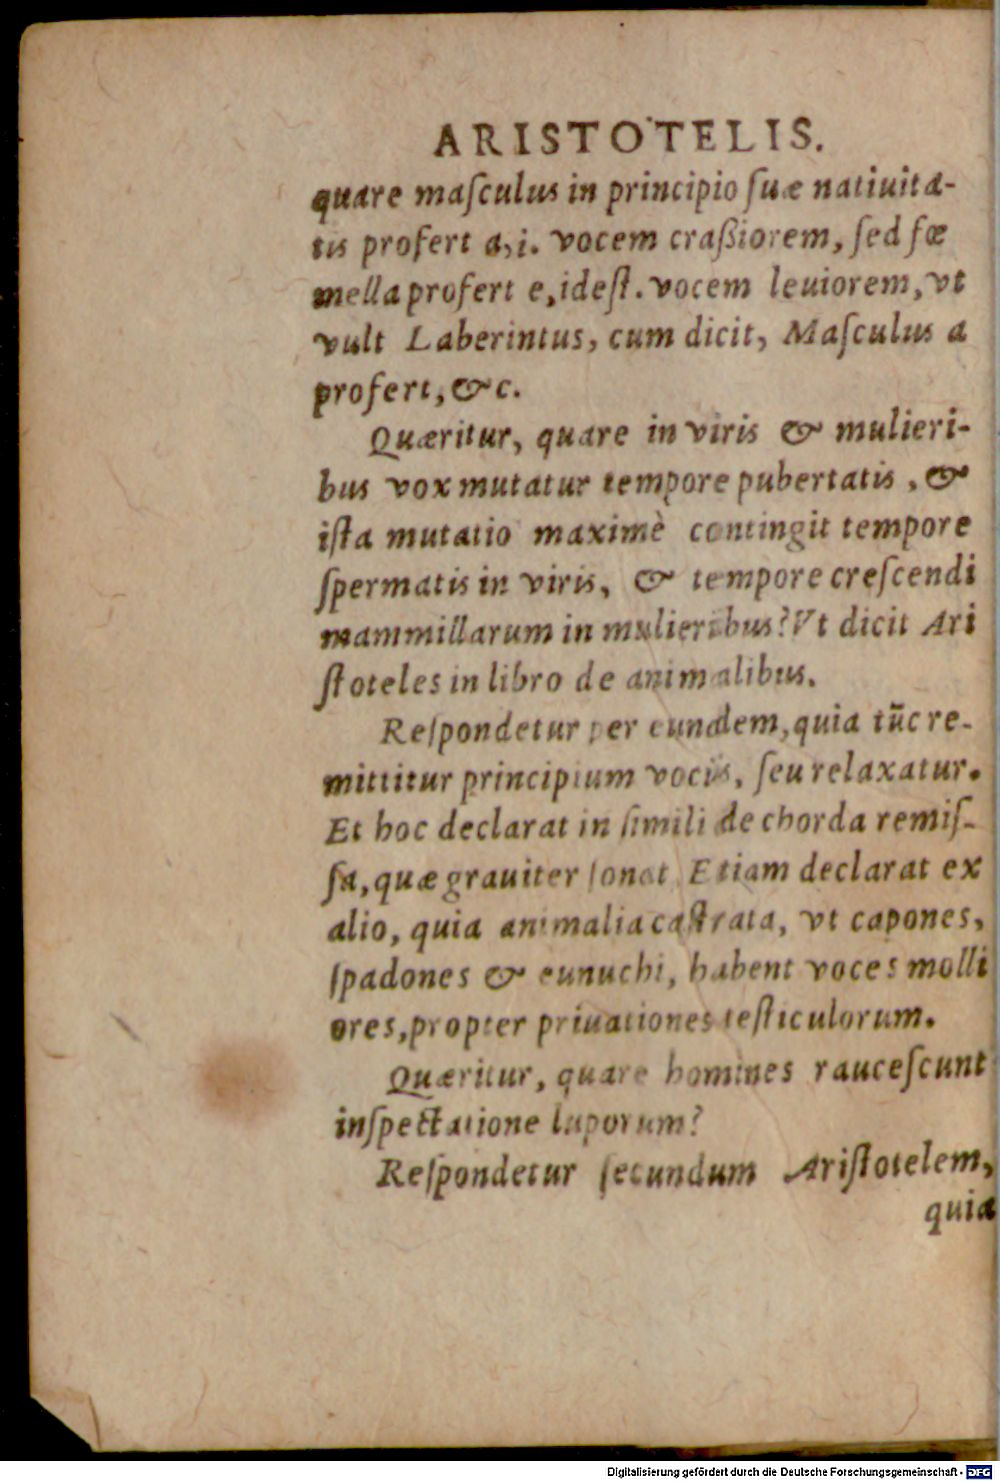 ARISTOTELIS.
quare maſculus in principio ſuæ natiuita-
tis profert a, i. vocem craßiorem, ſed fœ
mella profert e, ideſt. vocem leuiorem, vt
vult Laberintus, cum dicit, Maſculus a
profert, &c.
Quæritur, quare in viris & mulieri-
bus vox mutatur tempore pubertatis, &
iſta mutatio maximè contingit tempore
ſpermatis in viris, & tempore creſcendi
mammillarum in mulieribus? Vt dicit Ari
ſtoteles in libro de animalibus.
Reſpondetur per eundem, quia tũc re-
mittitur principium vocis, ſeu relaxatur.
Et hoc declarat in ſimili de chorda remiſ-
ſa, quæ grauiter ſonat. Etiam declarat ex
alio, quia animalia caſtrata, vt capones,
ſpadones & eunuchi, habent voces molli
ores, propter priuationes teſticulorum.
Quæritur, quare homines rauceſcunt
inſpectatione luporum?
Reſpondetur ſecundum Ariſtotelem,
quia
Digitalisierung gefördert durch die Deutsche Forschungsgemeinschaft - DFG